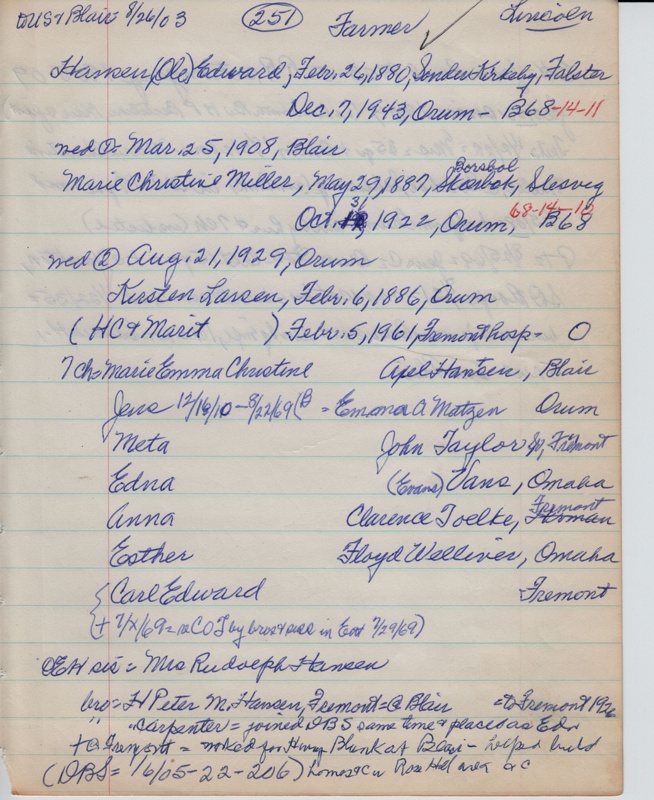 toUS & Blair 8/26/03 (251) Farmer ✓ Lincoln
Hansen (Ole) Edward, Febr. 26, 1880, Sonder Kirkeby, Falster
Dec. 7, 1943, Orum - B68-14-11
wed ① Mar. 25, 1908, Blair
Borsbol
Marie Christine Miller, May 29, 1887, Skorbok, Slesvig
68-14-10
Oct. 3, 1922, Orum, B68
wed ② Aug. 21, 1929, Orum
Kirsten Larsen, Febr. 6, 1886, Orum
(HC & Marit ) Febr. 5, 1961, Fremont hosp - O
7 ch = Marie Emma Christine Axel Hansen, Blair
Jens 12/16/10 - 8/22/69 (B = Emma A Matzen Orum
Meta John Taylor Fremont
Edna (Evans) Vans, Omaha
Fremont
Anna Clarence Toelke,
Esther Floyd Welliver, Omaha
Carl Edward Fremont
+ 7/X/69 = by bros & sis in Ent 7/29/69)
OEH sis = Mrs Rudolph Hansen
bro = H Peter M. Hansen, Fremont = @ Blair = to Fremont 1926
" carpenter = joined DBS same time & place as Edw
+ @ Fremont = worked for Henry Blunk at Blair - helped build
(DBS = 1/6/05-22-206) homes & in Rose Hill area &c